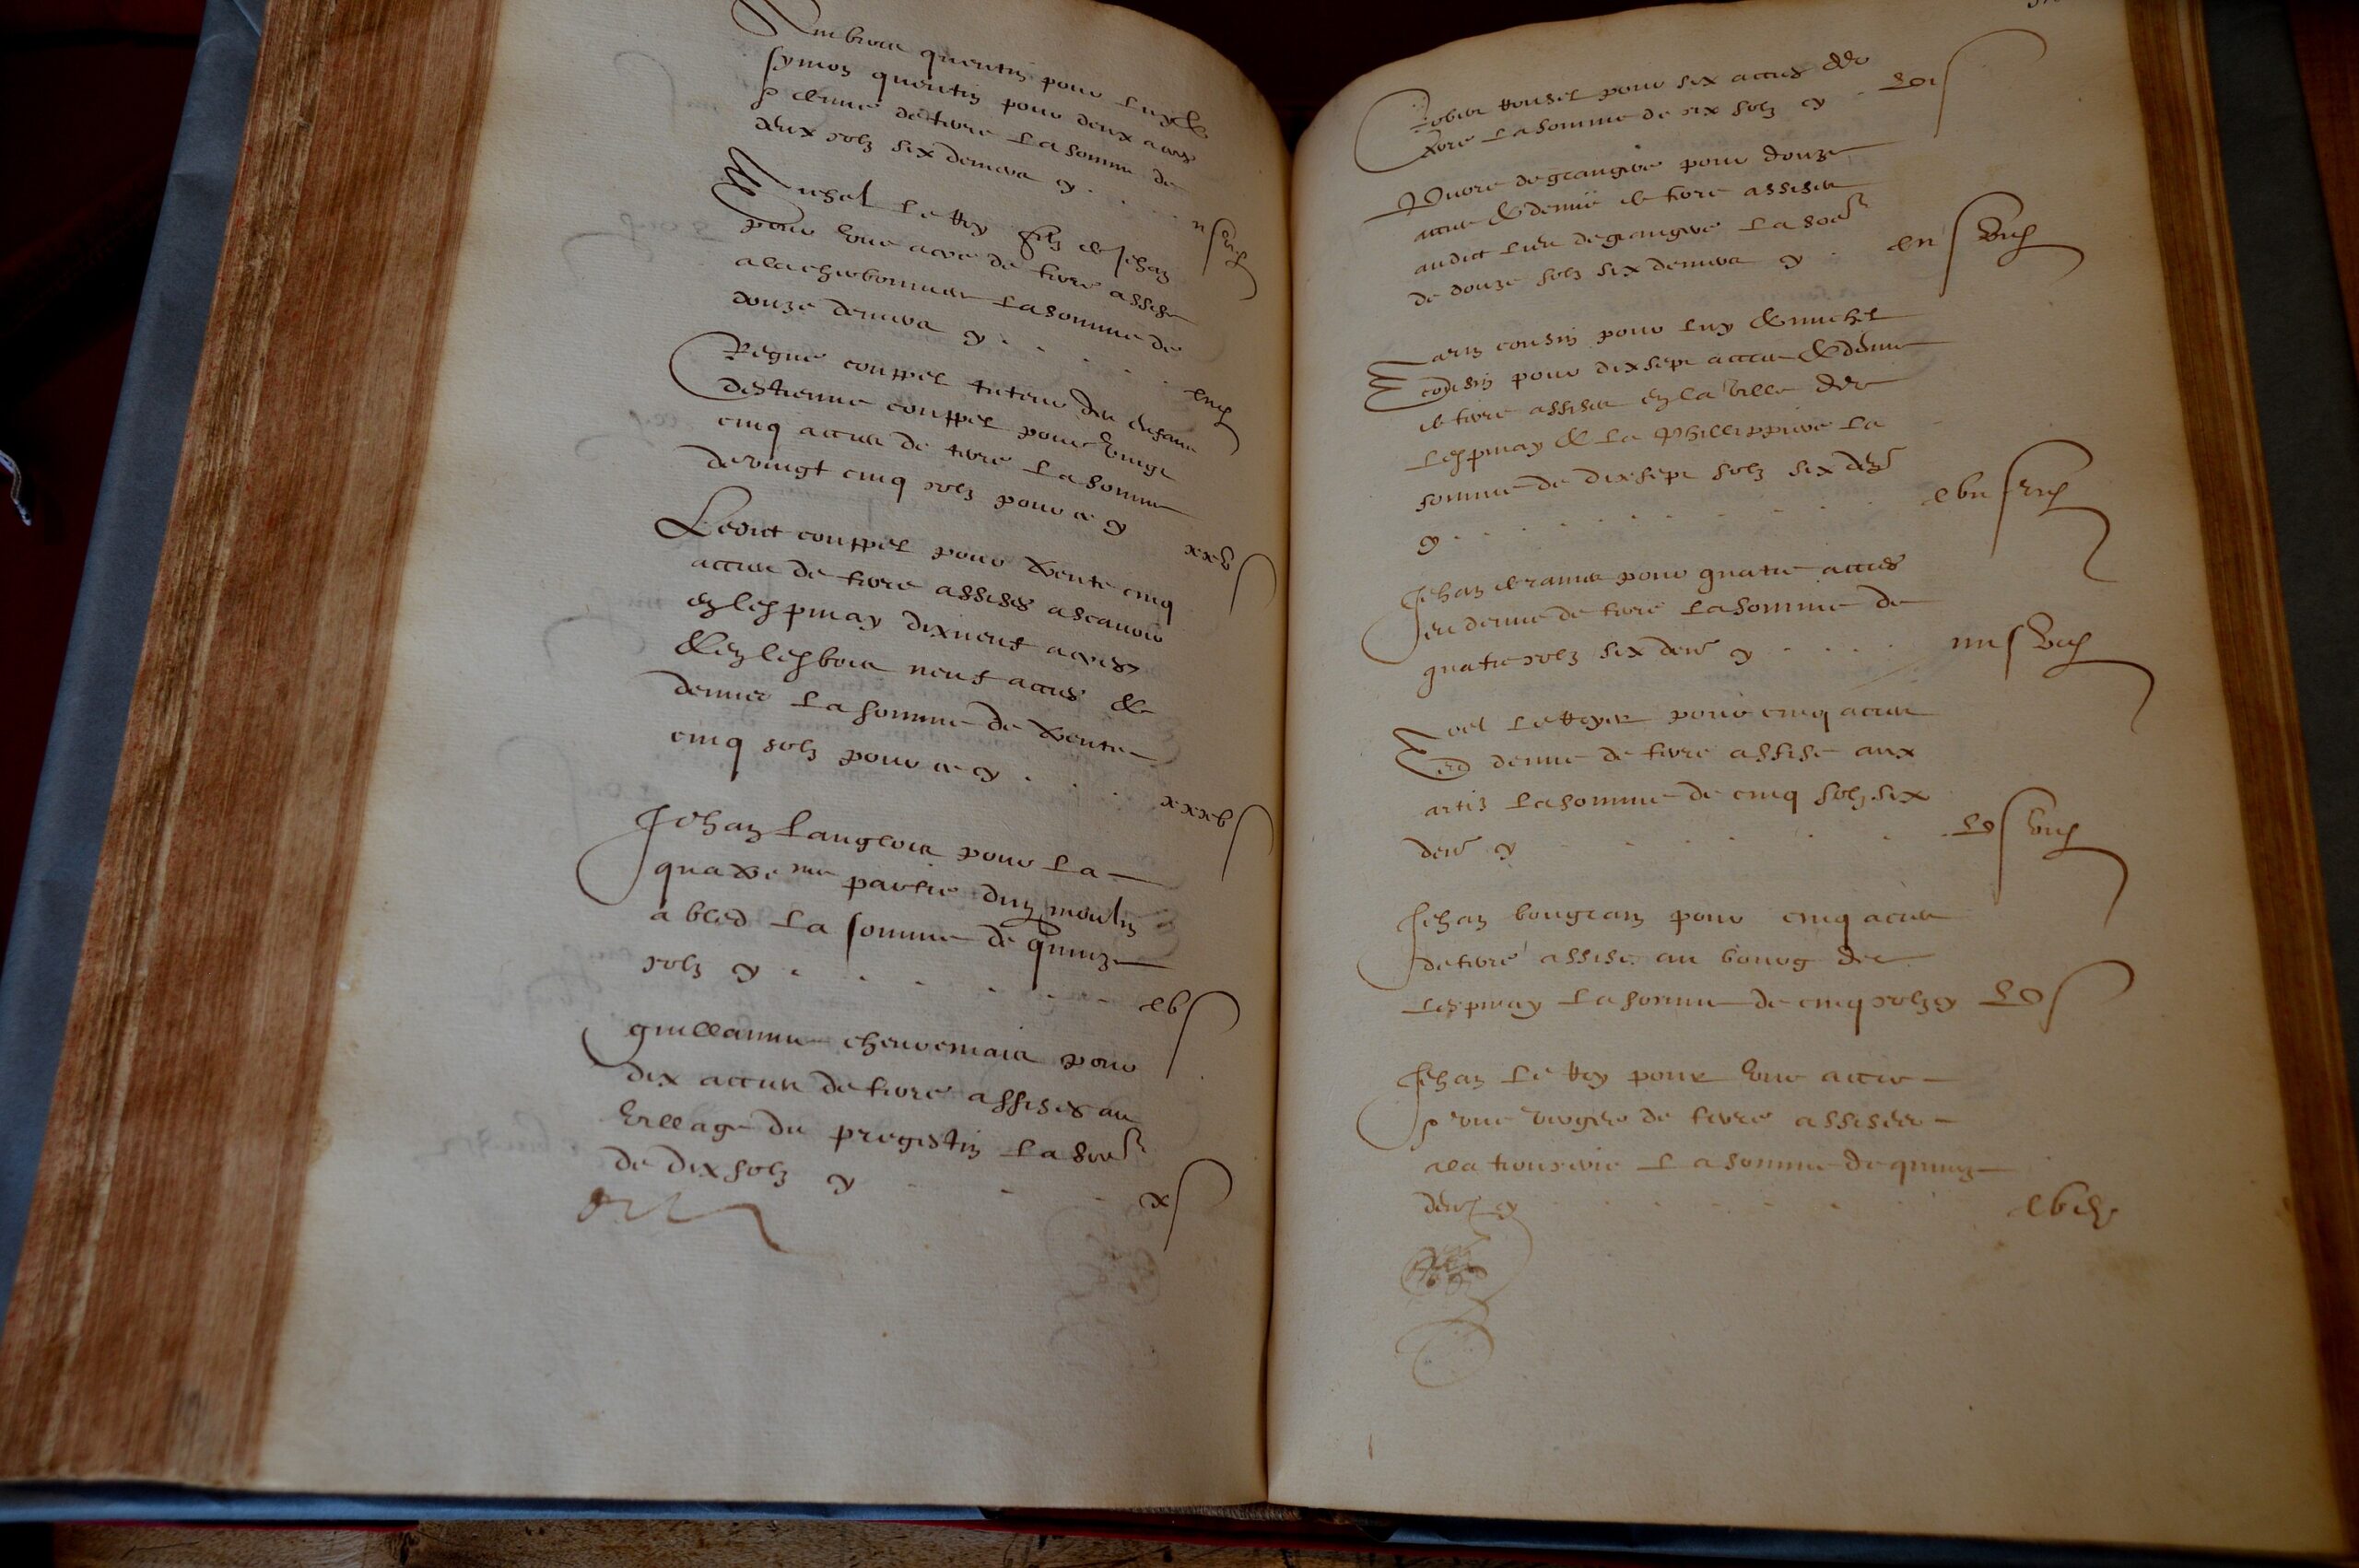 Ambroys quentin pour luy &
symon quentin pour deux acres
& demie de terre la somme de
deux solz six deniers cy . . . ii s vi d
Michel le Roy filz de Jehan
pour une acre de terre assise
a la cherbonniere la somme de
douze deniers cy . . . . . xii d
couppel tuteur des enffans
destienne couppel pour vingt
cinq acres de terre la somme
de vingt cinq solz pour ce cy xxv s
Ledict couppel pour trente cinq
acres de terre assises ascavoir
en lespinay dixneuf acres
& en lesbois neuf acres &
demie la somme de trente
cinq solz pour ce cy . . . xxxv s
Jehan Langlois pour la
quatre me partie dun moulin
a bled la somme de quinze
solz cy . . . . . . . xv s
guillaume pour
dix acres de terre assises au
village du la som
de dix solz cy . . . x s
Robert housel pour six acres de
terre la somme de six solz cy . vi s
pour douze
acres & demie de terre assises
audict lieu de la som
de douze solz six deniers cy . xii s vi d
Marin cousin pour luy & michel
cousin pour dix sept acres & demie
de terre assises en la ville de
lespinay & la Phillippiere la
somme de dix sept solz six den
cy . . . . . . . . . . . xvii s vi d
Jehan pour quatre acres
et demie de terre la somme de
quatre solz six den cy . . . . iiii s vi d
Noel le pour cinq acres
et demie de terre assise aux
artis la somme de cinq solz six
den cy . . . . . . v s vi d
Jehan bougran pour cinq acres
de terre assise au bourg de
lespinay la somme de cinq solz cy v s
Jehan le Roy pour une acre
& une vergee de terre assises
a la la somme de quinze
den cy . . . . . . . xv d